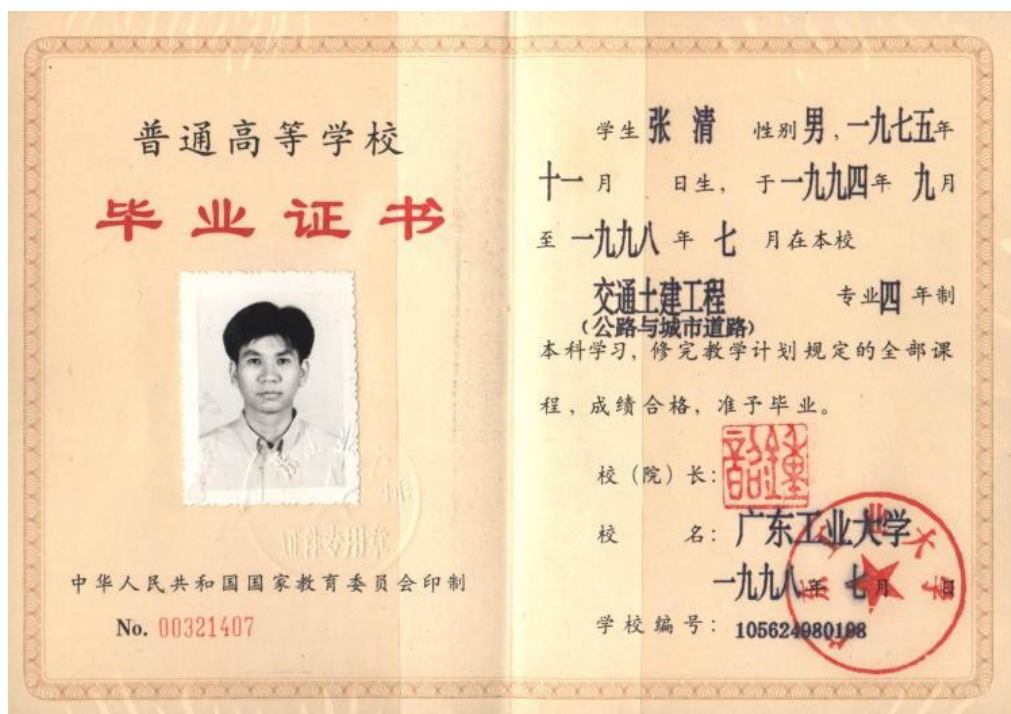 普通高等学校
毕业证书
证件专用章
中华人民共和国国家教育委员会印制
No. 00321407
学生 张 清 性别 男，一九七五年
十一月 日生，于一九九四年 九月
至 一九九八 年 七 月在本校
交通土建工程 专业四 年制
（公路与城市道路）
本科学习，修完教学计划规定的全部课
程，成绩合格，准予毕业。
校（院）长：
校 名：广东工业大学
一九九八年 七月 日
学校编号：105624980198